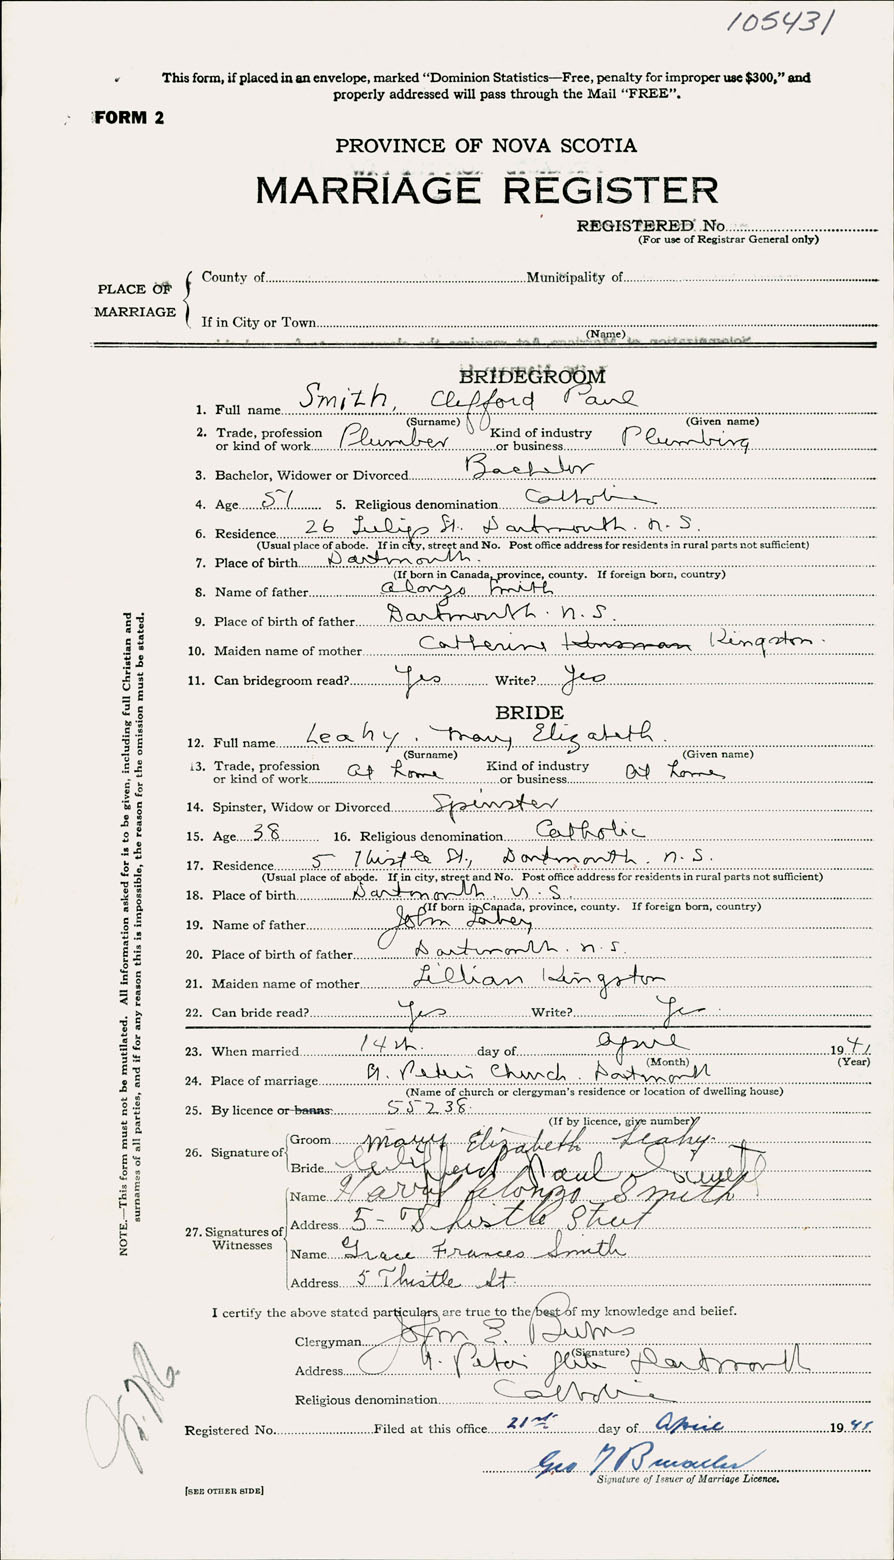 105431
This form, if placed in an envelope, marked "Dominion Statistics—Free, penalty for improper use $300," and
properly addressed will pass through the Mail "FREE".
FORM 2
PROVINCE OF NOVA SCOTIA
MARRIAGE REGISTER
REGISTERED No.
(For use of Registrar General only)
PLACE OF MARRIAGE
County of Municipality of
If in City or Town
(Name)
BRIDEGROOM
1. Full name Smith, Clifford Paul
(Surname) (Given name)
2. Trade, profession or kind of work Plumber Kind of industry or business Plumbing
3. Bachelor, Widower or Divorced Bachelor
4. Age 51 5. Religious denomination Catholic
6. Residence 26 Tulip St. Dartmouth. N.S.
(Usual place of abode. If in city, street and No. Post office address for residents in rural parts not sufficient)
7. Place of birth Dartmouth.
(If born in Canada, province, county. If foreign born, country)
8. Name of father Alonzo Smith
9. Place of birth of father Dartmouth. N.S.
10. Maiden name of mother Catherine Kinsman Kingston.
11. Can bridegroom read? Yes Write? Yes
BRIDE
12. Full name Leahy, Mary Elizabeth.
(Surname) (Given name)
13. Trade, profession or kind of work At home Kind of industry or business At home
14. Spinster, Widow or Divorced Spinster
15. Age 38 16. Religious denomination Catholic
17. Residence 5 Thistle St., Dartmouth. N.S.
(Usual place of abode. If in city, street and No. Post office address for residents in rural parts not sufficient)
18. Place of birth Dartmouth. N.S.
(If born in Canada, province, county. If foreign born, country)
19. Name of father John
20. Place of birth of father Dartmouth. N.S.
21. Maiden name of mother Lillian Kingston
22. Can bride read? Yes Write? Yes
23. When married 14th day of April 1941
(Month) (Year)
24. Place of marriage St. Peter's Church. Dartmouth
(Name of church or clergyman's residence or location of dwelling house)
25. By licence or banns: 55238.
(If by licence, give number)
26. Signature of
Groom Mary Elizabeth Leahy.
Bride Clifford Paul Smith
27. Signatures of Witnesses
Name Alonzo Smith
Address 5 - Thistle Street
Name Grace Frances Smith
Address 5 Thistle St.
I certify the above stated particulars are true to the best of my knowledge and belief.
Clergyman John E. Burns
(Signature)
Address St. Peter's Glebe Dartmouth
Religious denomination Catholic
Registered No. Filed at this office 21st day of April 1945
Geo
Signature of Issuer of Marriage Licence.
[SEE OTHER SIDE]
NOTE.—This form must not be mutilated. All information asked for is to be given, including full Christian and
surnames of all parties, and if for any reason this is impossible, the reason for the omission must be stated.